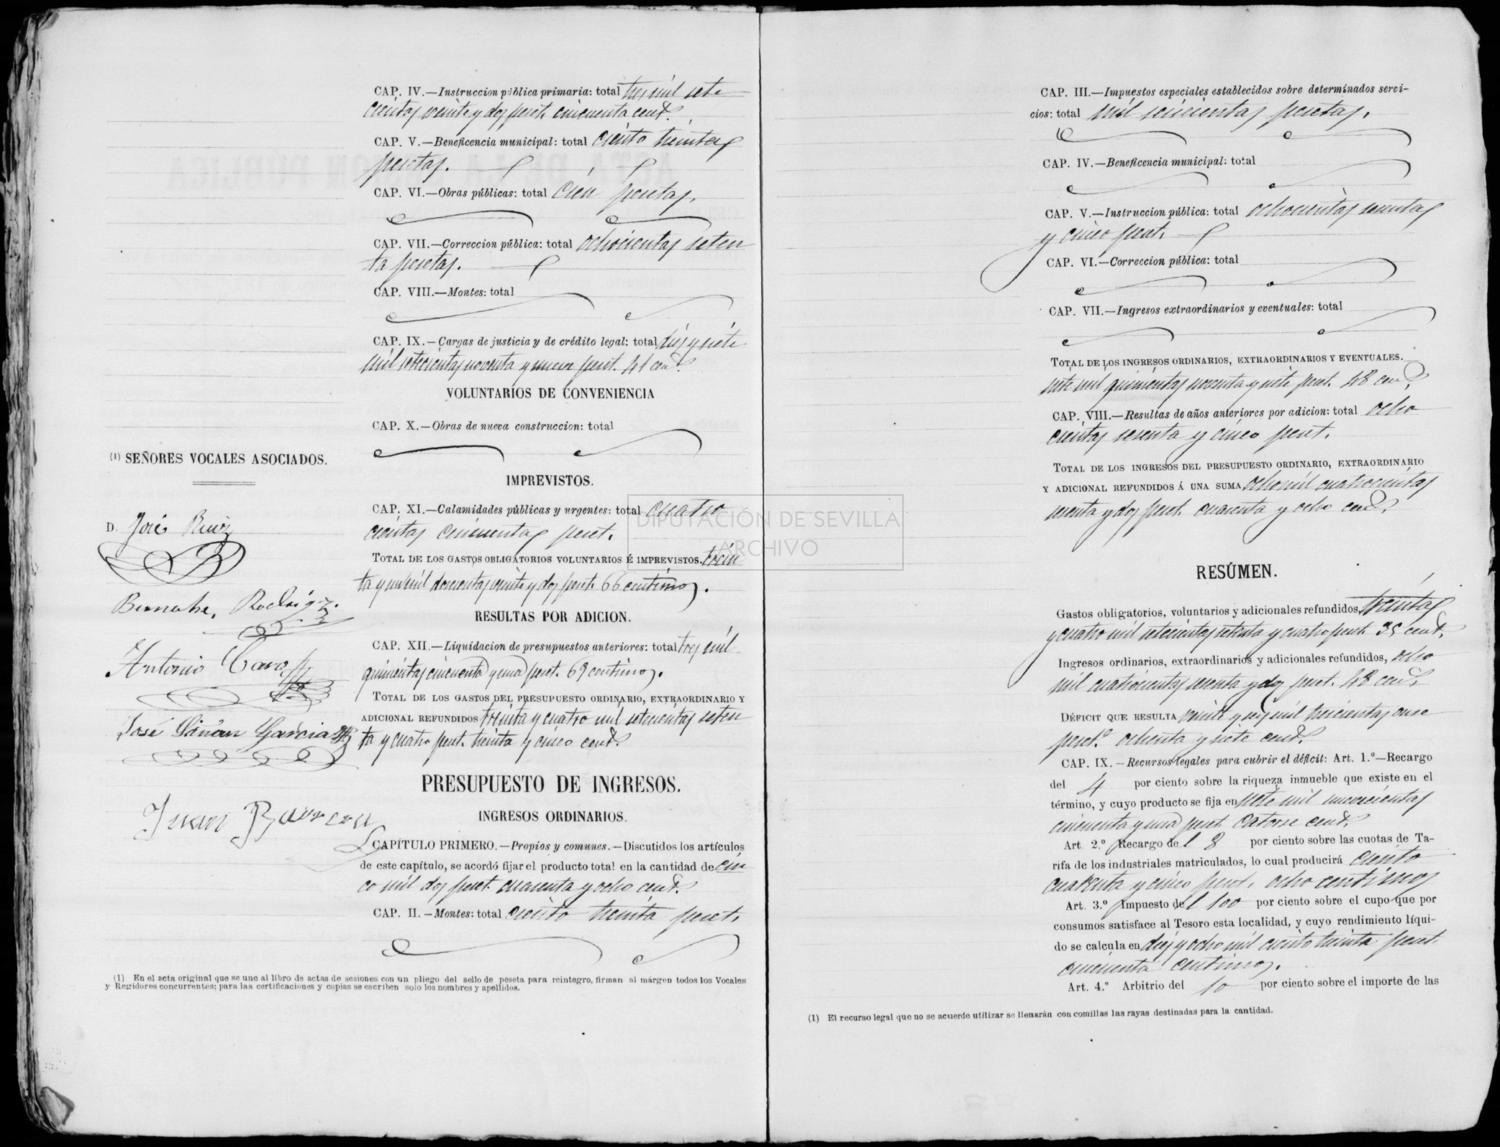 CAP. IV.—Instruccion pública primaria: total tres mil sete
cientas veinte y dos peset. cincuenta cent.s
CAP. V.—Beneficencia municipal: total ciento treinta
pesetas.
CAP. VI.—Obras públicas: total cien pesetas.
CAP. VII.—Correccion pública: total ochocientas seten
ta pesetas.
CAP. VIII.—Montes: total
CAP. IX.—Cargas de justicia y de crédito legal: total diez y siete
mil setecientas noventa y nueve peset. 41 cent.s
VOLUNTARIOS DE CONVENIENCIA
CAP. X.—Obras de nueva construccion: total
(1) SEÑORES VOCALES ASOCIADOS.
IMPREVISTOS.
CAP. XI.—Calamidades públicas y urgentes: total cuatro
cientas cincuenta peset.
TOTAL DE LOS GASTOS OBLIGATORIOS VOLUNTARIOS É IMPREVISTOS. trein
ta y un mil doscientas veinte y dos peset. 66 centimos.
D. José Ruiz
Bernabe Rodrigz.
Antonio
José Liñan Garcia
Juan
RESULTAS POR ADICION.
CAP. XII.—Liquidacion de presupuestos anteriores: total tres mil
quinientas cincuenta y una peset. 69 centimos.
TOTAL DE LOS GASTOS DEL PRESUPUESTO ORDINARIO, EXTRAORDINARIO Y
ADICIONAL REFUNDIDOS treinta y cuatro mil setecientas seten
ta y cuatro peset. treinta y cinco cent.s
PRESUPUESTO DE INGRESOS.
INGRESOS ORDINARIOS.
CAPÍTULO PRIMERO.—Propios y comunes.—Discutidos los artículos
de este capítulo, se acordó fijar el producto total en la cantidad de cin
co mil dos peset. cuarenta y ocho cent.s
CAP. II.—Montes: total ciento treinta peset.
(1) En el acta original que se une al libro de actas de sesiones con un pliego del sello de peseta para reintegro, firman al márgen todos los Vocales
y Regidores concurrentes; para las certificaciones y copias se escriben solo los nombres y apellidos.
CAP. III.—Impuestos especiales establecidos sobre determinados servi-
cios: total mil seiscientas pesetas.
CAP. IV.—Beneficencia municipal: total
CAP. V.—Instruccion pública: total ochocientas sesenta
y cinco peset.
CAP. VI.—Correccion pública: total
CAP. VII.—Ingresos extraordinarios y eventuales: total
TOTAL DE LOS INGRESOS ORDINARIOS, EXTRAORDINARIOS Y EVENTUALES.
siete mil quinientas noventa y siete peset. 48 cent.
CAP. VIII.—Resultas de años anteriores por adicion: total ocho
cientas sesenta y cinco peset.
TOTAL DE LOS INGRESOS DEL PRESUPUESTO ORDINARIO, EXTRAORDINARIO
Y ADICIONAL REFUNDIDOS Á UNA SUMA, ocho mil cuatrocientas
sesenta y dos peset. cuarenta y ocho cent.
DIPUTACIÓN DE SEVILLA
ARCHIVO
RESÚMEN.
Gastos obligatorios, voluntarios y adicionales refundidos, treinta
y cuatro mil setecientas setenta y cuatro peset. 35 cent.
Ingresos ordinarios, extraordinarios y adicionales refundidos, ocho
mil cuatrocientas sesenta y dos peset. 48 cent.
DÉFICIT QUE RESULTA veinte y seis mil trescientas once
peset. ochenta y siete cent.
CAP. IX.—Recursos legales para cubrir el déficit: Art. 1.º—Recargo
del 4 por ciento sobre la riqueza inmueble que existe en el
término, y cuyo producto se fija en siete mil novecientas
cincuenta y una peset. catorce cent.
Art. 2.º Recargo del 8 por ciento sobre las cuotas de Ta-
rifa de los industriales matriculados, lo cual producirá ciento
cuarenta y cinco peset. ocho centimos
Art. 3.º Impuesto del 100 por ciento sobre el cupo que por
consumos satisface al Tesoro esta localidad, y cuyo rendimiento líqui-
do se calcula en diez y ocho mil ciento treinta peset.
cincuenta centimos.
Art. 4.º Arbitrio del 10 por ciento sobre el importe de las
(1) El recurso legal que no se acuerde utilizar se llenarán con comillas las rayas destinadas para la cantidad.